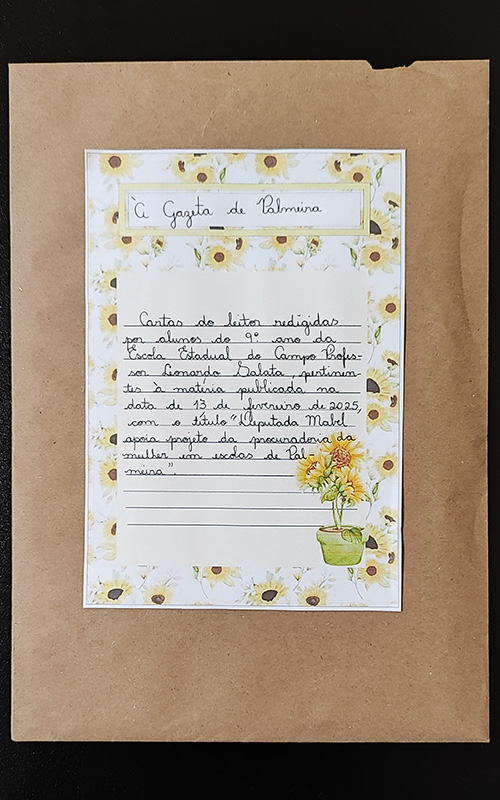 À Gazeta de Palmeira
Cartas do leitor redigidas
por alunos do 9º ano da
Escola Estadual do Campo Profes-
sor Leonardo Salata, pertinen-
tes à matéria publicada na
data de 13 de fevereiro de 2025,
com o título "Deputada Mabel
apoia projeto da procuradoria da
mulher em escolas de Pal-
meira".